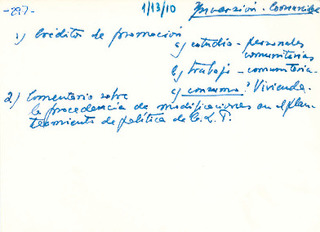 -297- 1/13/10 Inversión - Economía
1) Créditos de promoción
a) estudio - personales
comunitarias
b) trabajo - comunitaria.
c) consumo? Vivienda.
2) Comentario sobre
la procedencia de modificaciones en el plan-
teamiento de política de C.L.T.